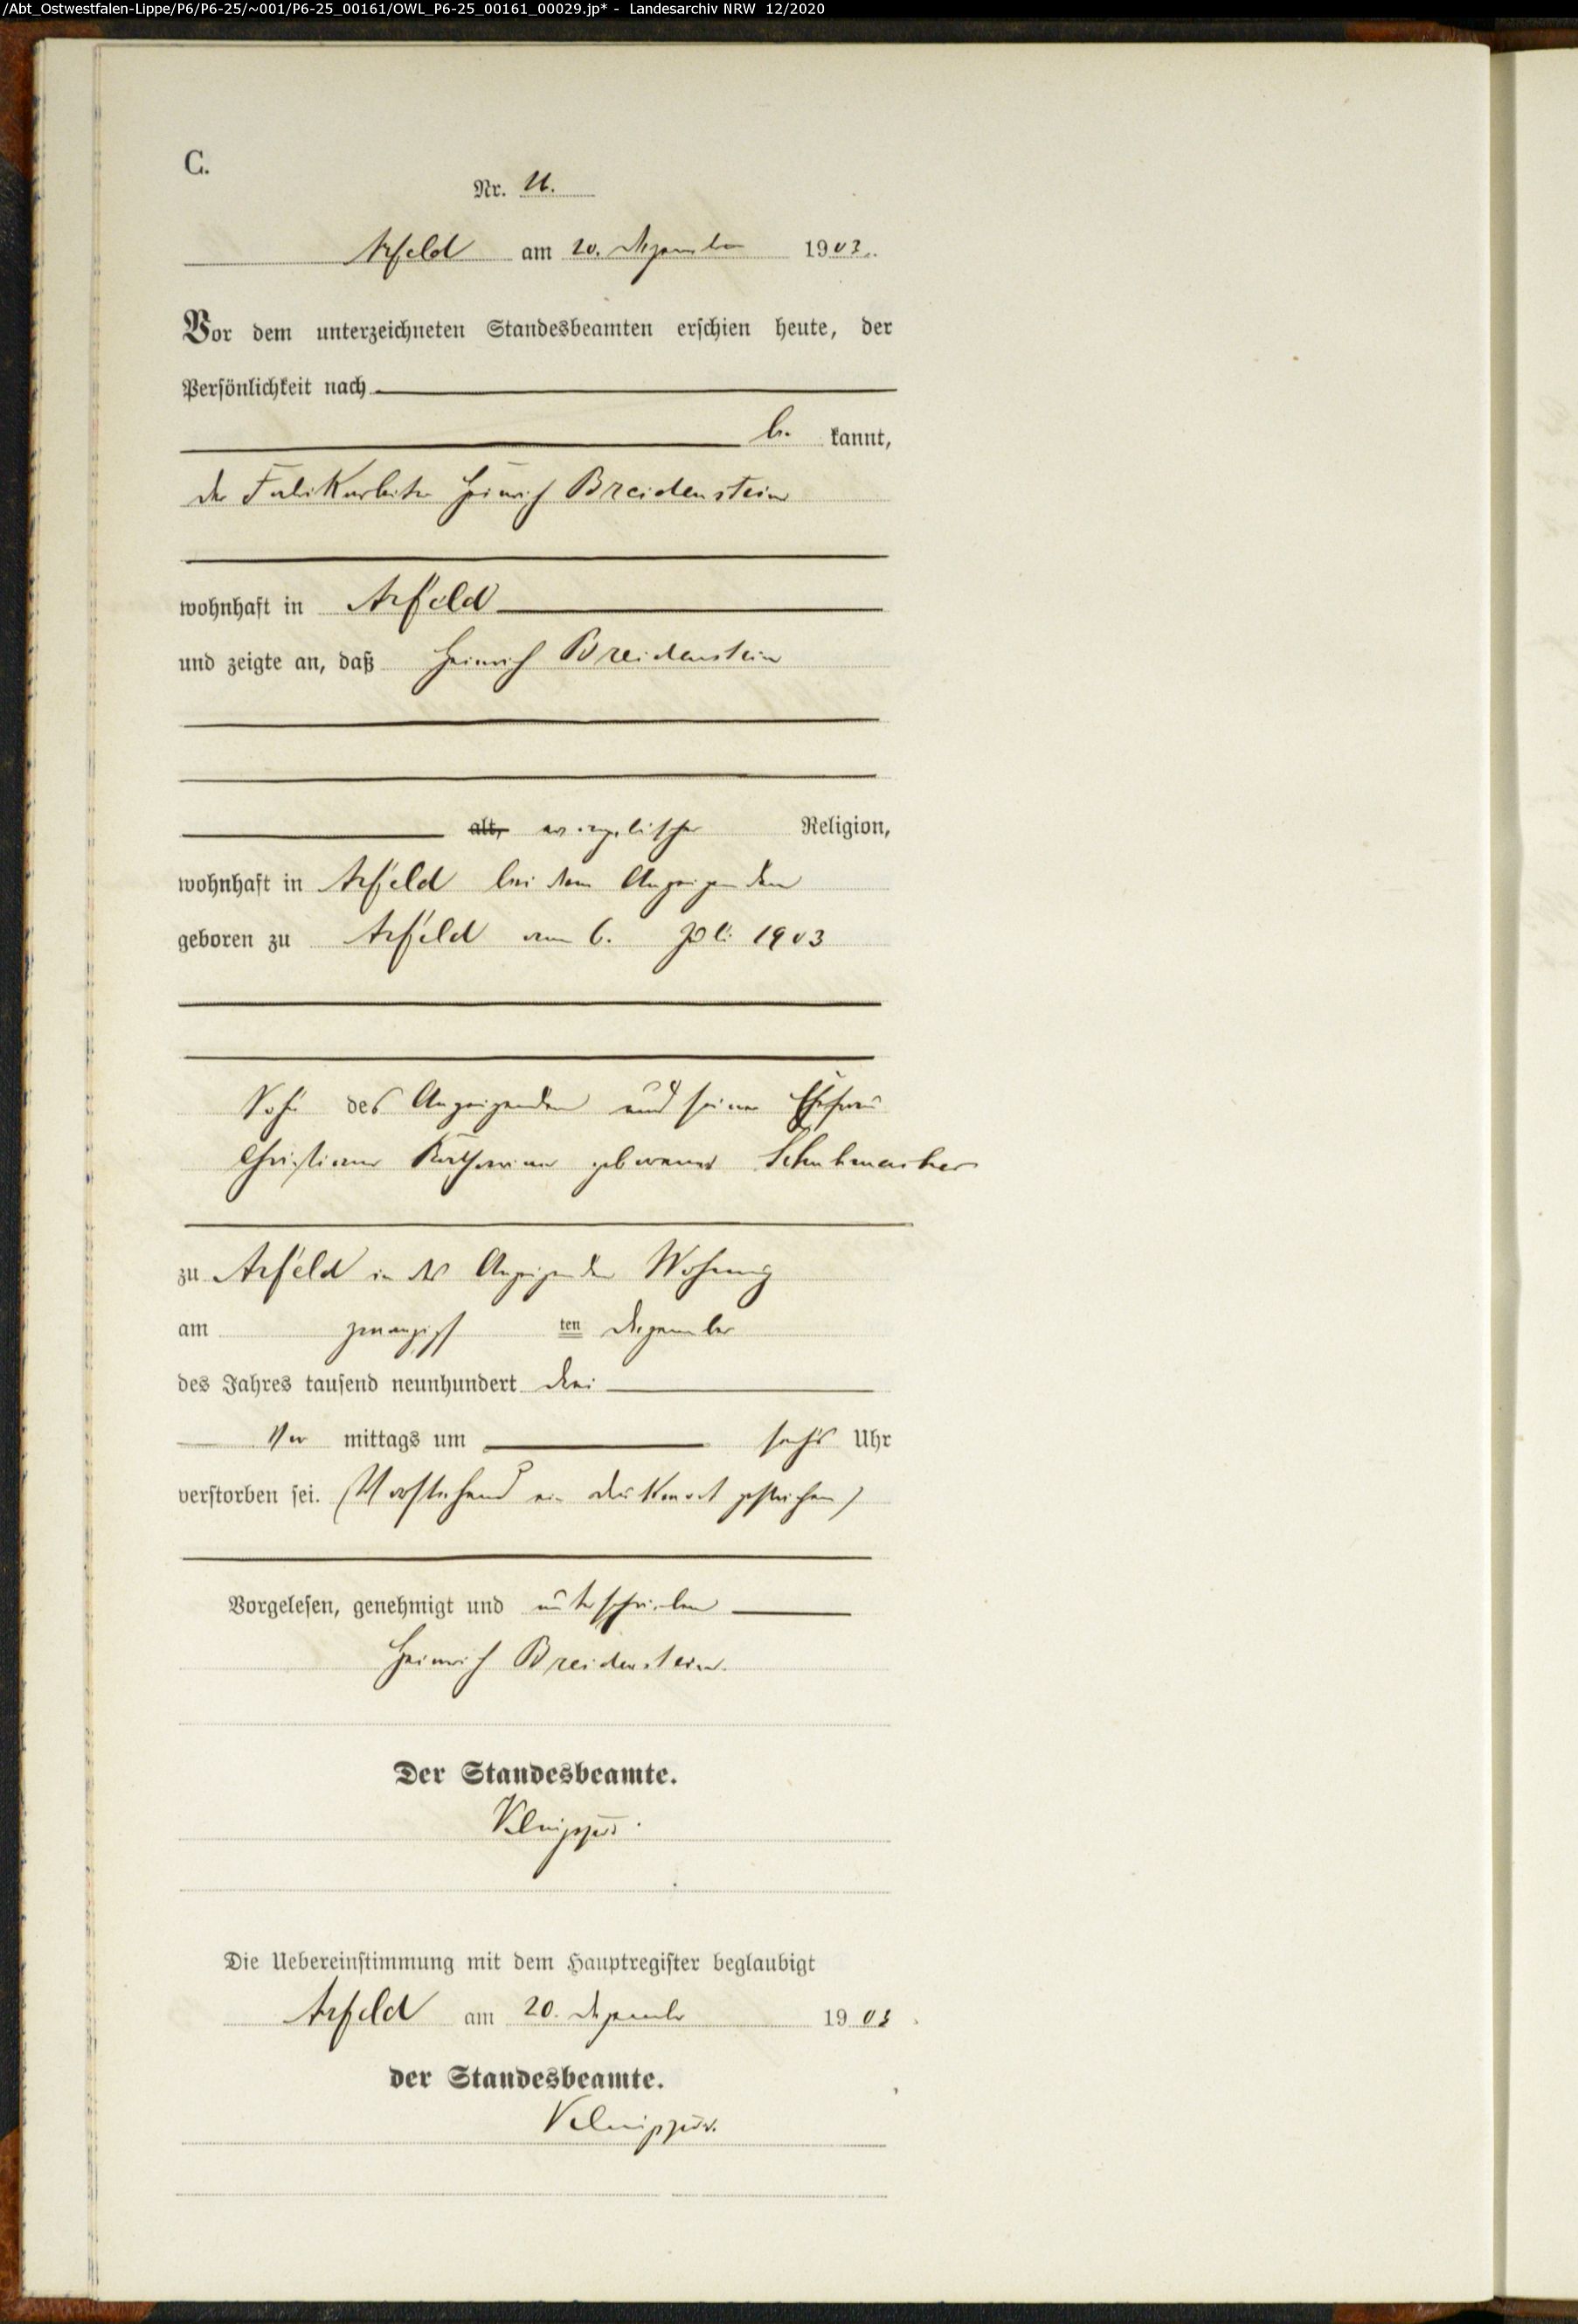 /Abt_Ostwestfalen-Lippe/P6/P6-25/~001/P6-25_00161/OWL_P6-25_00161_00029.jp* - Landesarchiv NRW 12/2020
C.
Nr.
Arfeld am 20. Dezember 1903.
Vor dem unterzeichneten Standesbeamten erschien heute, der
Persönlichkeit nach
be kannt,
der Fabrikarbeiter Heinrich Breidenstein
wohnhaft in Arfeld
und zeigte an, daß Heinrich Breidenstein
alt, evangelischer Religion,
wohnhaft in Arfeld bei dem Anzeigenden
geboren zu Arfeld am 6. Juli 1903
Sohn des Anzeigenden und seiner Ehefrau
Christiane Katharine geborene Schuhmacher
zu Arfeld in des Anzeigenden Wohnung
am zwanzigsten Dezember
des Jahres tausend neunhundert drei
Vor mittags um sechs Uhr
verstorben sei. (Vorstehend ein Druckwort gestrichen)
Vorgelesen, genehmigt und unterschrieben
Heinrich Breidenstein.
Der Standesbeamte.
Die Uebereinstimmung mit dem Hauptregister beglaubigt
Arfeld am 20. Dezember 1903
der Standesbeamte.